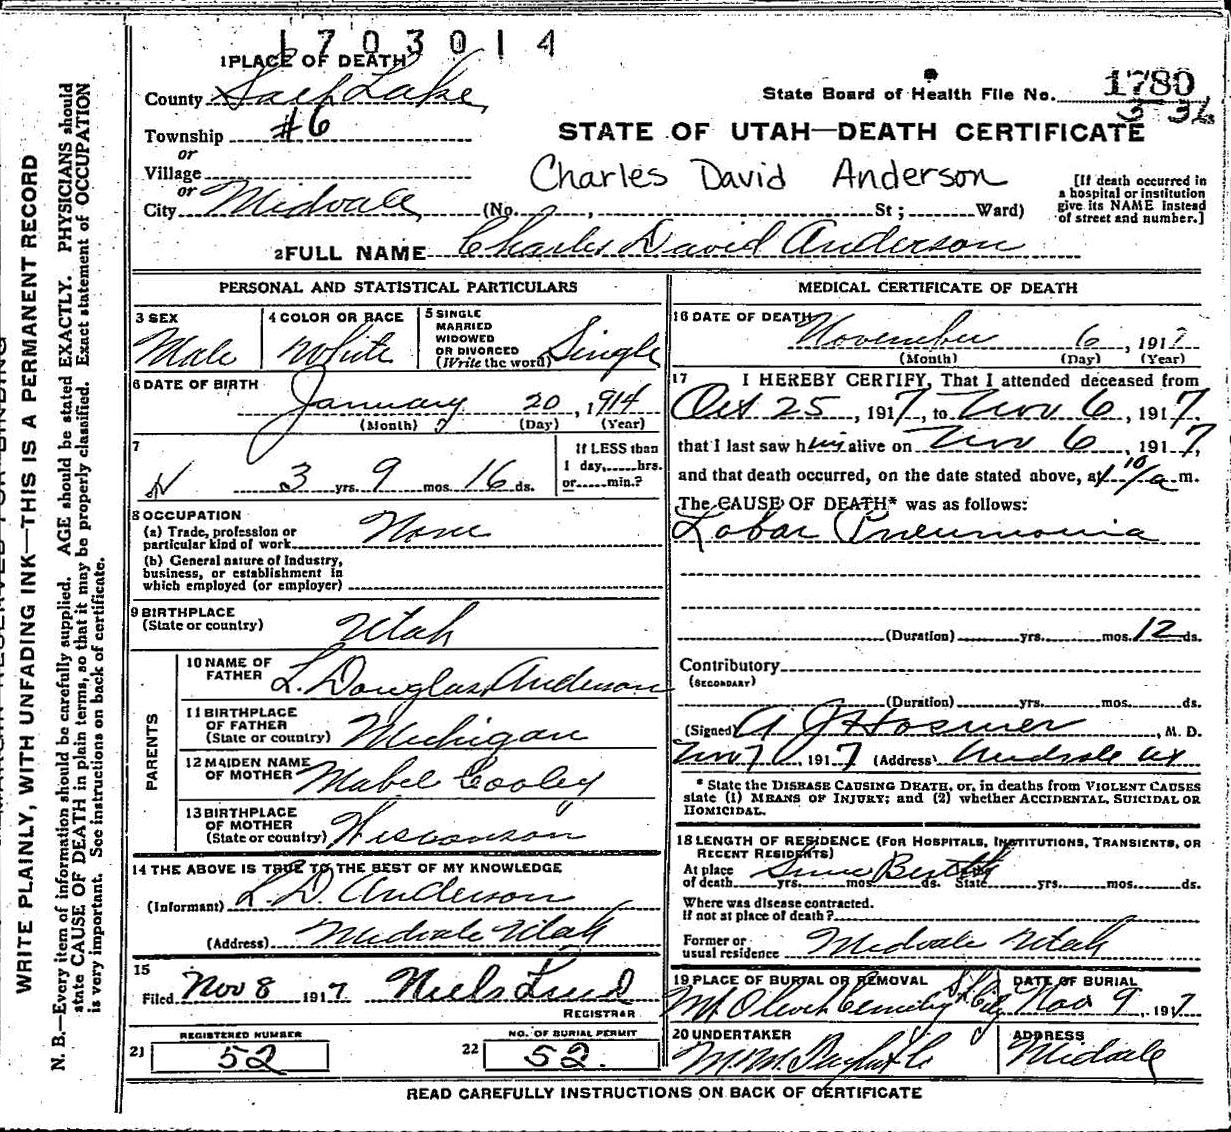 1703014
1 PLACE OF DEATH
County Salt Lake
State Board of Health File No. 1780
Township #6
or
STATE OF UTAH—DEATH CERTIFICATE
Village
or
Charles David Anderson
[If death occurred in
a hospital or institution
give its NAME instead
of street and number.]
City Midvale (No. , St; Ward)
2 FULL NAME Charles David Anderson
PERSONAL AND STATISTICAL PARTICULARS
3 SEX
Male
4 COLOR OR RACE
White
5 SINGLE
MARRIED
WIDOWED
OR DIVORCED
(Write the word) Single
6 DATE OF BIRTH
January 20, 1914
(Month) (Day) (Year)
7
3 yrs. 9 mos. 16 ds.
If LESS than
1 day, hrs.
or min.?
8 OCCUPATION
(a) Trade, profession or
particular kind of work None
(b) General nature of Industry,
business, or establishment in
which employed (or employer)
9 BIRTHPLACE
(State or country) Utah
PARENTS
10 NAME OF
FATHER L. Douglas Anderson
11 BIRTHPLACE
OF FATHER
(State or country) Michigan
12 MAIDEN NAME
OF MOTHER Mabel Cooley
13 BIRTHPLACE
OF MOTHER
(State or country) Wisconson
14 THE ABOVE IS TRUE TO THE BEST OF MY KNOWLEDGE
(Informant) L. D. Anderson
(Address) Midvale Utah
15
Filed Nov 8 1917 Niels Lind
REGISTRAR
REGISTERED NUMBER
21 52
NO. OF BURIAL PERMIT
22 52.
MEDICAL CERTIFICATE OF DEATH
16 DATE OF DEATH
November 6, 1917
(Month) (Day) (Year)
17 I HEREBY CERTIFY, That I attended deceased from
Oct 25, 1917, to Nov 6, 1917,
that I last saw him alive on Nov 6, 1917,
and that death occurred, on the date stated above, at 10 a m.
The CAUSE OF DEATH* was as follows:
Lobar Pneumonia
(Duration) yrs. mos. 12 ds.
Contributory
(SECONDARY)
(Duration) yrs. mos. ds.
(Signed) A J Hosmer, M. D.
Nov 7 1917 (Address) Midvale Ut
* State the DISEASE CAUSING DEATH, or, in deaths from VIOLENT CAUSES
state (1) MEANS OF INJURY; and (2) whether ACCIDENTAL, SUICIDAL OR
HOMICIDAL.
18 LENGTH OF RESIDENCE (FOR HOSPITALS, INSTITUTIONS, TRANSIENTS, OR
RECENT RESIDENTS)
At place
of death Since Birth yrs. mos. ds. State yrs. mos. ds.
Where was disease contracted.
if not at place of death?
Former or
usual residence Midvale Utah
19 PLACE OF BURIAL OR REMOVAL
Mt Olivet Cemetery
DATE OF BURIAL
Nov 9, 1917
20 UNDERTAKER
ADDRESS
Midvale
READ CAREFULLY INSTRUCTIONS ON BACK OF CERTIFICATE
WRITE PLAINLY, WITH UNFADING INK—THIS IS A PERMANENT RECORD
N. B.—Every item of information should be carefully supplied. AGE should be stated EXACTLY. PHYSICIANS should
state CAUSE OF DEATH in plain terms, so that it may be properly classified. Exact statement of OCCUPATION
is very important. See instructions on back of certificate.